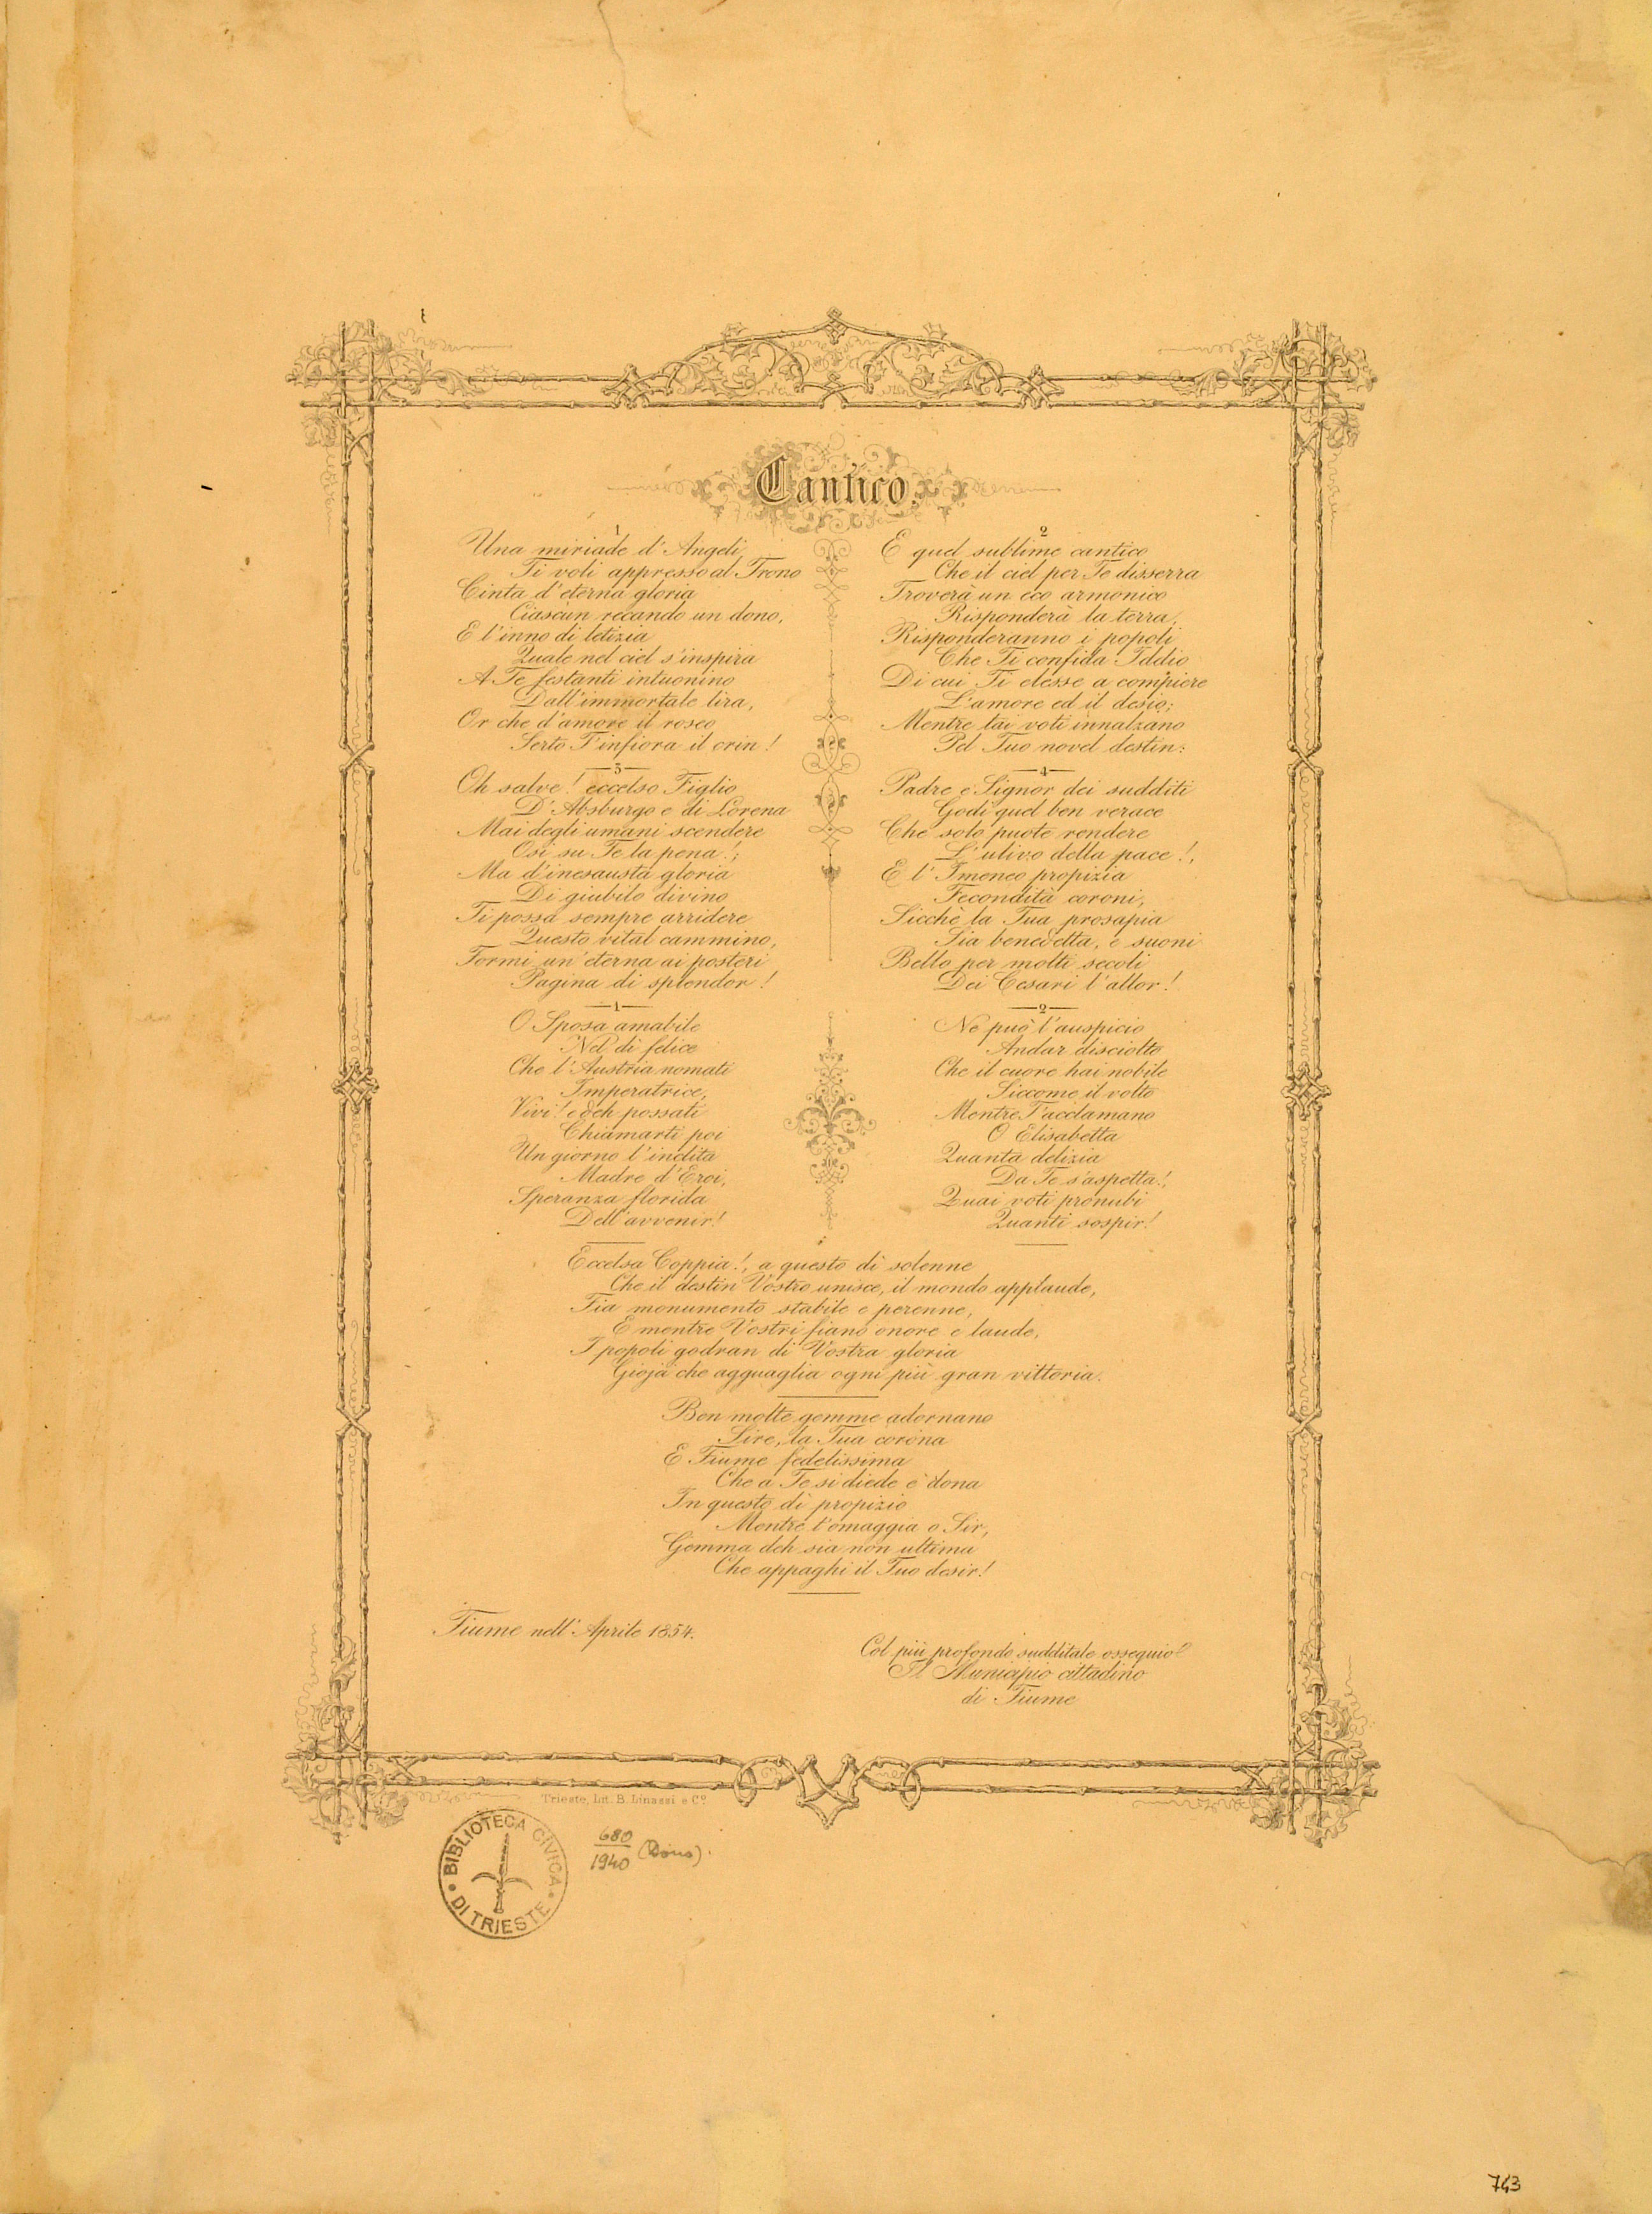 Cantico.
1
Una miriade d'Angeli
Ti voli appresso al Trono
Cinta d'eterna gloria
Ciascun recando un dono,
E l'inno di letizia
Quale nel ciel s'inspira
A Te festanti intuonino
Dall'immortale lira,
Or che d'amore il roseo
Serto T'infiora il crin!
2
E quel sublime cantico
Che il ciel per Te disserra
Troverà un eco armonico
Risponderà la terra,
Risponderanno i popoli
Che Ti confida Iddio
Di cui Ti elesse a compiere
L'amore ed il desio;
Mentre tai voti innalzano
Pel Tuo novel destin:
3
Oh salve! eccelso Figlio
D'Absburgo e di Lorena
Mai degli umani scendere
Osi su Te la pena!;
Ma d'inesausta gloria
Di giubilo divino
Ti possa sempre arridere
Questo vital cammino,
Formi un'eterna ai posteri
Pagina di splendor!
4
Padre e Signor dei sudditi
Godi quel ben verace
Che solo puote rendere
L'ulivo della pace!,
E l'Imeneo propizia
Fecondità coroni,
Sicchè la Tua prosapia
Sia benedetta, e suoni
Bello per molti secoli
Dei Cesari l'allor!
1
O Sposa amabile
Nel dì felice
Che l'Austria nomati
Imperatrice,
Vivi! e deh possati
Chiamarti poi
Un giorno l'inclita
Madre d'Eroi,
Speranza florida
Dell'avvenir!
2
Ne può l'auspicio
Andar disciolto
Che il cuore hai nobile
Siccome il volto
Mentre T'acclamano
O Elisabetta
Quanta delizia
Da Te s'aspetta!,
Quai voti pronubi
Quanti sospir!
Eccelsa Coppia!, a questo dì solenne
Che il destin Vostro unisce, il mondo applaude,
Fia monumento stabile e perenne,
E mentre Vostri fiano onore e laude,
I popoli godran di Vostra gloria
Gioja che agguaglia ogni più gran vittoria.
Ben molte gemme adornano
Sire, la Tua corona
E Fiume fedelissima
Che a Te si diede e dona
In questo dì propizio
Mentre t'omaggia o Sir,
Gemma deh sia non ultima
Che appaghi il Tuo desir!
Fiume nell'Aprile 1854.
Col più profondo sudditale ossequio
Il Municipio cittadino
di Fiume
Trieste, Lit. B. Linassi e Cº.
BIBLIOTECA CIVICA
DI TRIESTE
680
1940 (Dono).
743